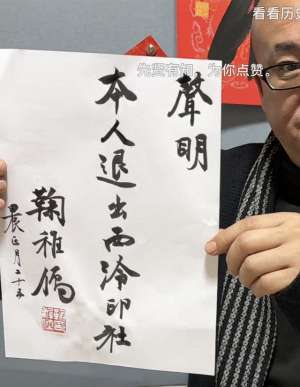 看看历史
先贤有知，为你点赞。
聲明
本人退出西泠印社
鞠稚儒
辰正月二十五